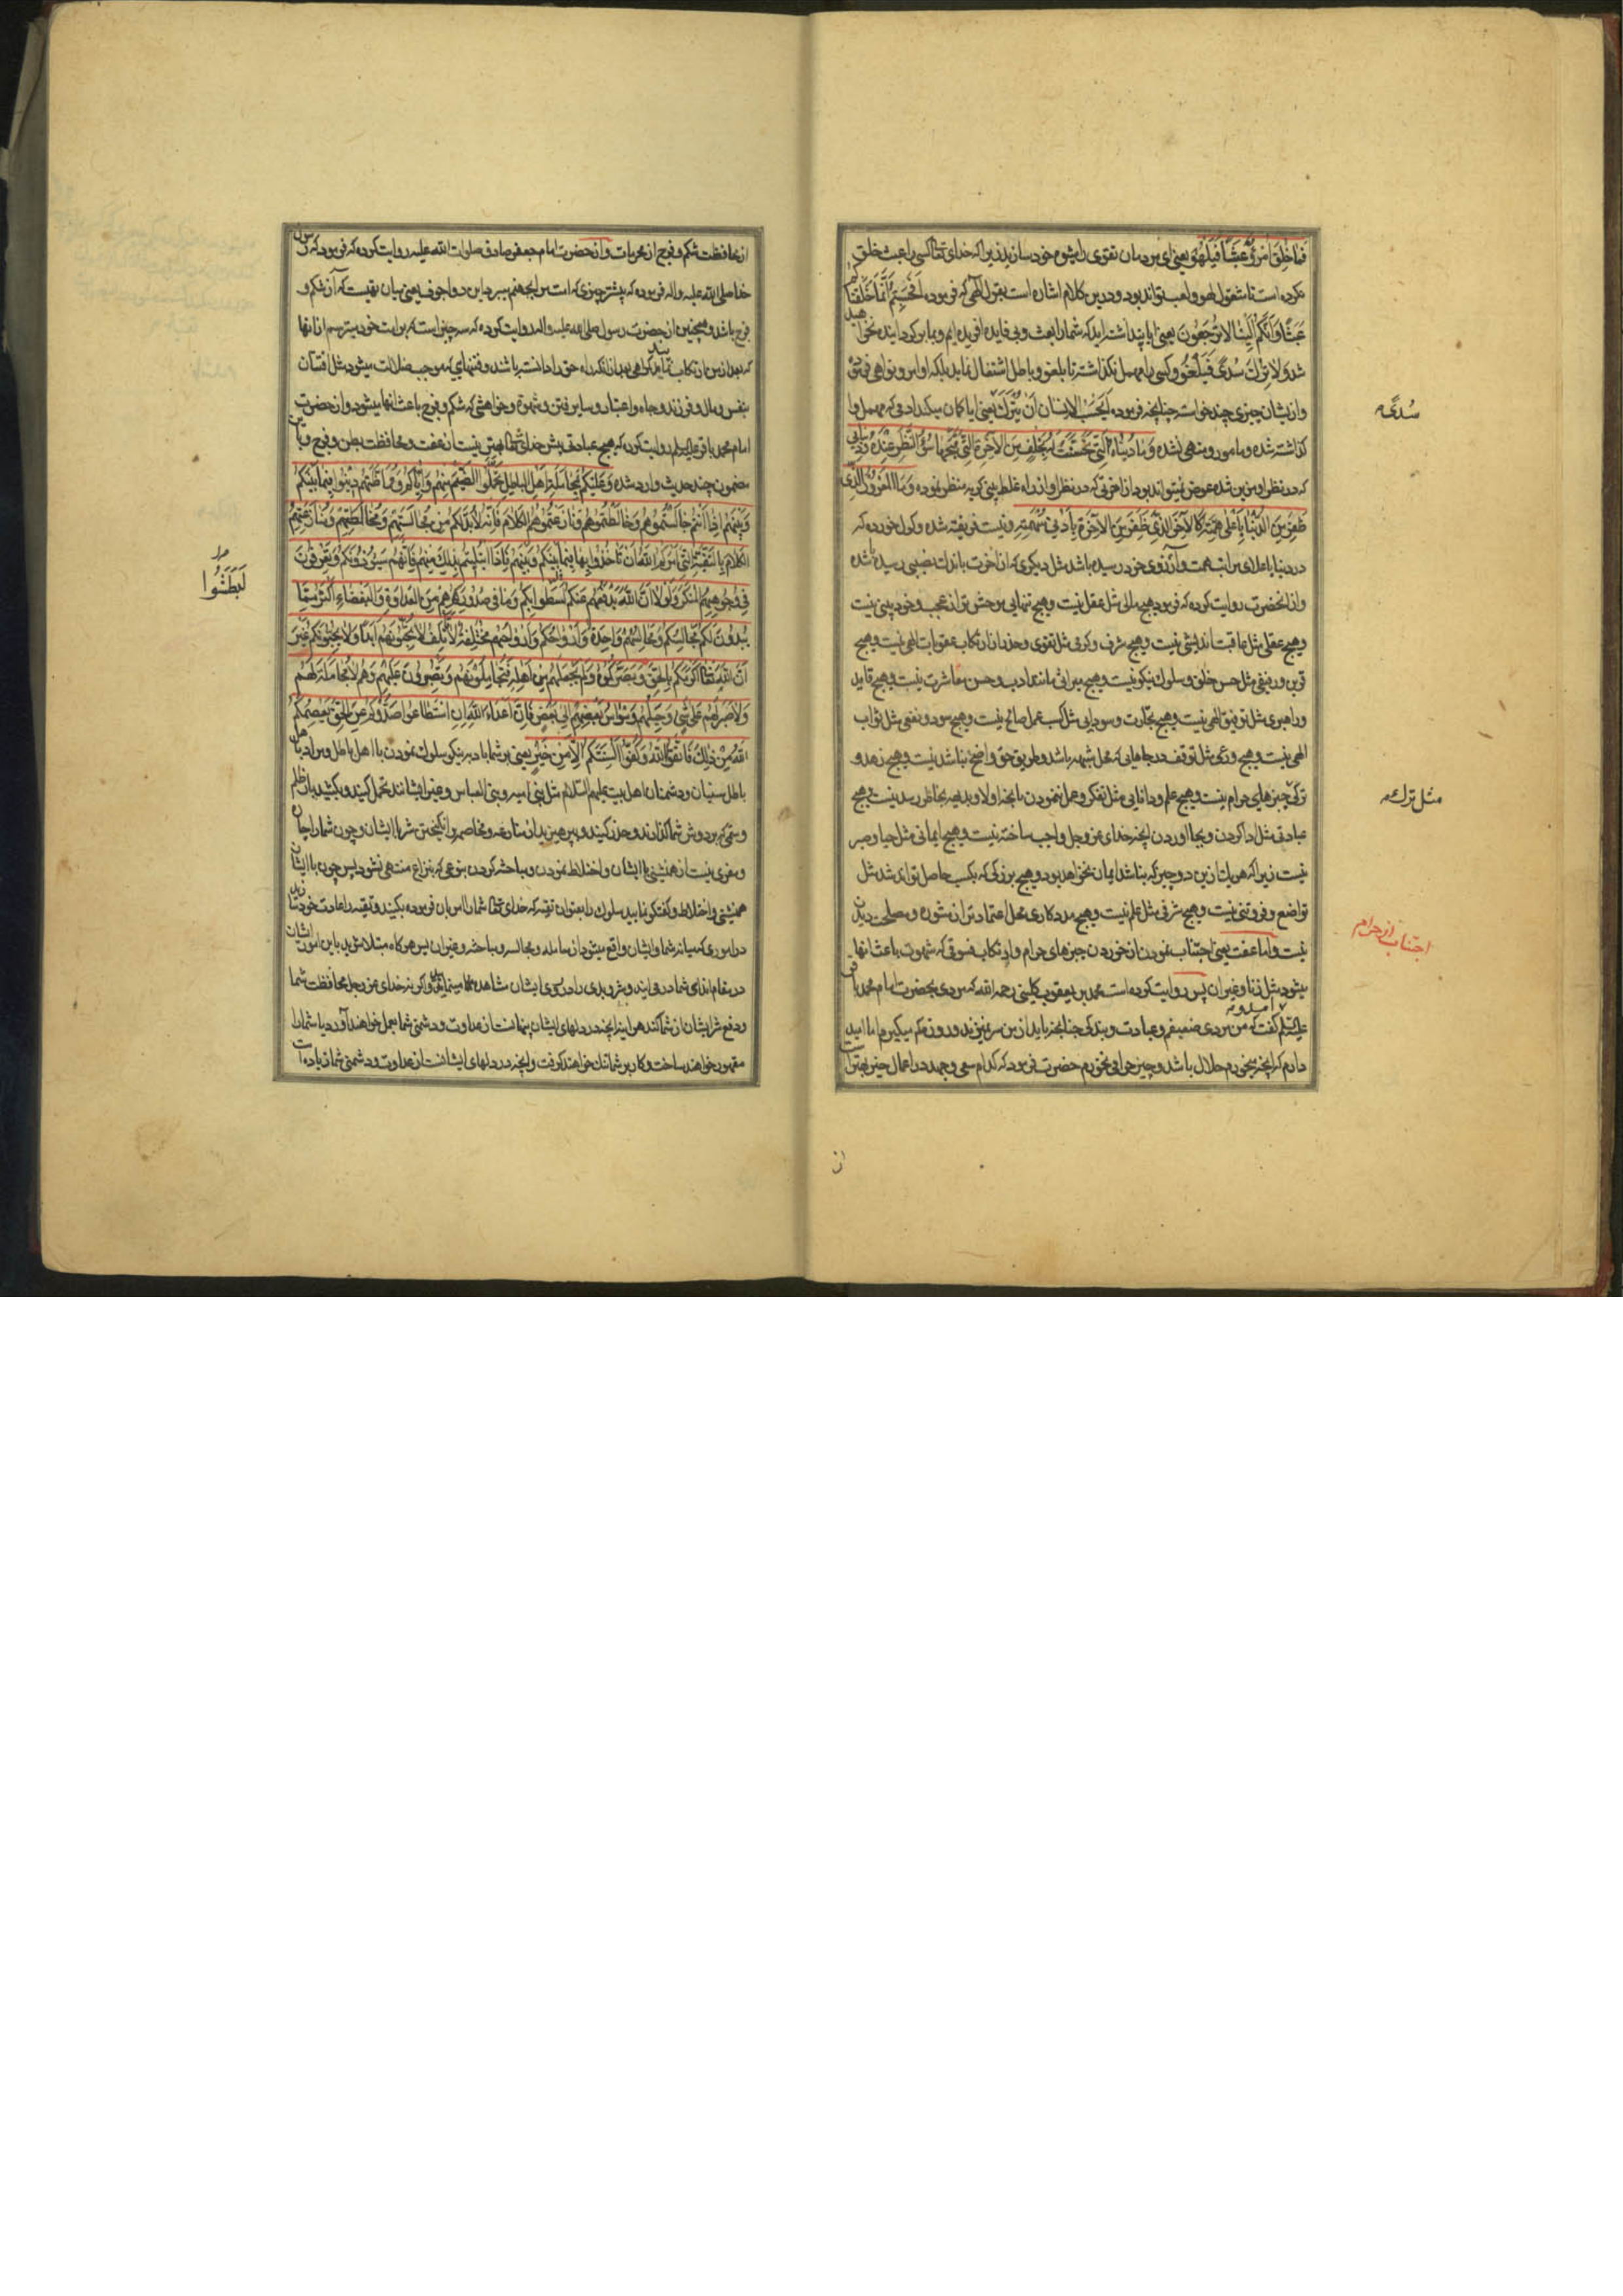 فَمَا خُلِقَ امْرُؤٌ عَبَثًا فَيَلْهُوَ یعنی ای مردمان تقوی را شیوه خود سازید زیرا که خدای تعالی کسی را عبث خلق
نکرده است تا مشغول لهو و لعب تواند بود و درین کلام اشاره است بقول الهی که فرموده اَفَحَسِبْتُمْ اَنَّمَا خَلَقْنَاکُمْ
عَبَثًا وَاَنَّکُمْ اِلَیْنَا لَا تُرْجَعُونَ یعنی ایا پنداشته اید که شما را بعبث و بی فایده افریده ایم و بما بر کردانیده نخواهید
شد وَلَا تُرِكَ سُدًی فَیَلْغُوَ و کسی را مهمل نکذاشته تا بلغو و باطل اشتغال نماید بلکه اوامر و نواهی فرموده
و ازیشان چیزی چند خواسته چنانچه فرموده اَیَحْسَبُ الْاِنْسَانُ اَنْ یُتْرَكَ یعنی ایا کمان میکند ادمی که مهمل وا
کذاشته شده و مامور و منهی نشده وَمَا دُنْیَاهُ الَّتِی تَحَسَّنَتْ لَهُ بِخَلَفٍ مِنَ الْاٰخِرَةِ الَّتِی قَبَّحَهَا سُوءُ النَّظَرِ عِنْدَهُ
که در نظر او مزین شده عوض نمیتواند بود از اخرتی که در نظر او از راه غلط بینی کریه منظر نموده وَمَا الْمَغْرُورُ الَّذِی
ظَفِرَ مِنَ الدُّنْیَا بِاَعْلَی هِمَّتِهِ کَالْاٰخَرِ الَّذِی ظَفِرَ مِنَ الْاٰخِرَةِ بِاَدْنَی سُهْمَتِهِ و نیست فریفته شده و کول خورده که
در دنیا باعلای مراتب همت و آرزوی خود رسیده باشد مثل دیکری که از اخرت باندك نصیبی رسیده باشده
و از انحضرت روایت کرده که فرمود هیچ مالی مثل عقل نیست و هیچ تنهایی موحش تر از عجب و خود بینی نیست
و هیچ عقلی مثل عاقبت اندیشی نیست و هیچ شرف و کرمی مثل تقوی و حذر از ارتکاب عقوبات الهی نیست و هیچ
قرین و رفیقی مثل حسن خلق و سلوك نیکو نیست و هیچ میراثی مانند ادب و حسن معاشرت نیست و هیچ قاید
و راهبری مثل توفیق الهی نیست و هیچ تجارت و سودایی مثل کسب عمل صالح نیست و هیچ سود و نفعی مثل ثواب
الهی نیست و هیچ ورعی مثل توقف در جاهایی که محل شبهه باشد و طریق حق واضح نباشد نیست و هیچ زهد و
ترکی چیزهای حرام نیست و هیچ علم و دانایی مثل تفکر و عمل نمودن بانچه اولا و بدیهه بخاطر رسد نیست و هیچ
عبادتی مثل ادا کردن و بجا اوردن انچه خدای عز و جل واجب ساخته نیست و هیچ ایمانی مثل حیا و صبر
نیست زیرا که هر یك ازین دو چیز که نباشد ایمان نخواهد بود و هیچ بزرکی که بکسب حاصل تواند شد مثل
تواضع و فروتنی نیست و هیچ شرفی مثل علم نیست و هیچ مددکاری محل اعتماد تر از مشوره و مصلحت دیدن
نیست و اما عفت یعنی اجتناب نمودن از خوردن چیزهای حرام و ارتکاب فسوقی که شهوت باعث انها
میشود مثل زنا و غیر ان پس روایت کرده است محمد بن یعقوب کلینی رحمه الله که مردی بحضرت امام محمد باقر
علیه السلم کفت که من مردی ضعیفم و عبادت و بندکی چنانچه باید از من سر نمیزند و روزه کم میکیرم اما امید
دارم که انچه میخورم حلال باشد و چیز حرامی نخورم حضرت فرمود که کدام سعی و جهد در اعمال خیر بهتر است
سُدًی
مثل ترك
اجتناب از حرام
از
از محافظت شکم و فرج از محرمات و از حضرت امام جعفر صادق صلوات الله علیه روایت کرده که فرمود که رسول
خدا صلی الله علیه و اله فرموده که بیشتر چیزی که امت مرا بجهنم میبرد این دو اجوف یعنی میان تهیست که آن شکم و
فرج باشد و همچنین از حضرت رسول صلی الله علیه و اله روایت کرده که سه چیز است که بر امت خود میترسم از انها
که بعد از من ارتکاب نمایند کمراهی بعد از انکه راه حق را دانسته باشند و فتنهای که موجب ضلالت میشود مثل افتتان
بنفس و مال و فرزند و جاه و اعتبار و سایر فتن و شهوة و خواهشی که شکم و فرج باعث انها میشود و از حضرت
امام محمد باقر علیه السلم روایت کرده که هیچ عبادتی پیش خدای تعالی بهتر نیست از عفت و محافظت بطن و فرج و باین
مضمون چند حدیث وارد شده وَعَلَیْکُمْ بِمُجَامَلَةِ اَهْلِ الْبَاطِلِ تَحَمَّلُوا الضَّیْمَ مِنْهُمْ وَاِیَّاکُمْ وَمُمَاظَّتَهُمْ دِینُوا فِیمَا بَیْنَکُمْ
وَبَیْنَهُمْ اِذَا اَنْتُمْ جَالَسْتُمُوهُمْ وَخَالَطْتُمُوهُمْ وَنَازَعْتُمُوهُمُ الْکَلَامَ فَاِنَّهُ لَا بُدَّ لَکُمْ مِنْ مُجَالَسَتِهِمْ وَمُخَالَطَتِهِمْ وَمُنَازَعَتِهِمُ
الْکَلَامَ بِالتَّقِیَّةِ الَّتِی اَمَرَکُمُ اللّٰهُ اَنْ تَاْخُذُوا بِهَا فِیمَا بَیْنَکُمْ وَبَیْنَهُمْ فَاِذَا ابْتُلِیتُمْ بِذٰلِكَ مِنْهُمْ فَاِنَّهُمْ سَیُؤْذُونَکُمْ وَتَعْرِفُونَ
فِی وُجُوهِهِمُ الْمُنْکَرَ وَلَوْلَا اَنَّ اللّٰهَ یَدْفَعُهُمْ عَنْکُمْ لَسَطَوْا بِکُمْ وَمَا فِی صُدُورِهِمْ مِنَ الْعَدَاوَةِ وَالْبَغْضَاءِ اَکْثَرُ مِمَّا
یُبْدُونَ لَکُمْ مَجَالِسُکُمْ وَمَجَالِسُهُمْ وَاحِدَةٌ وَاَرْوَاحُکُمْ وَاَرْوَاحُهُمْ مُخْتَلِفَةٌ لَا تَأْتَلِفُ لَا تُحِبُّونَهُمْ اَبَدًا وَلَا یُحِبُّونَکُمْ غَیْرَ
اَنَّ اللّٰهَ تَعَالَی اَکْرَمَکُمْ بِالْحَقِّ وَبَصَّرَکُمُوهُ وَلَمْ یَجْعَلْهُمْ مِنْ اَهْلِهِ فَتُجَامِلُونَهُمْ وَتَصْبِرُونَ عَلَیْهِمْ وَهُمْ لَا مُجَامَلَةَ لَهُمْ
وَلَا صَبْرَ لَهُمْ عَلَی شَیْءٍ وَحِیَلُهُمْ وَسْوَاسُ بَعْضِهِمْ اِلَی بَعْضٍ فَاِنَّ اَعْدَاءَ اللّٰهِ اِنِ اسْتَطَاعُوا صَدُّوکُمْ عَنِ الْحَقِّ یَعْصِمُکُمُ
اللّٰهُ مِنْ ذٰلِكَ فَاتَّقُوا اللّٰهَ وَکُفُّوا اَلْسِنَتَکُمْ اِلَّا مِنْ خَیْرٍ یعنی بر شما باد به نیکو سلوك نمودن با اهل باطل و مراد باهل
باطل سنیان و دشمنان اهل بیت علیهم السلام مثل بنی امیه و بنی العباس و غیر ایشانند تحمل کنید و بکشید بار ظلم
و ستمی که بر دوش شما کذارند و حذر کنید و بپرهیزید از منازعه و مخاصمه و انکیختن شر با ایشان و چون شما را چاره
و مفری نیست از همنشینی با ایشان و اختلاط نمودن و مباحثه کردن بنوعی که بنزاع منتهی نشود پس چون با ایشان
همنشینی و اختلاط و کفتکو نمایید سلوك را بعنوان تقیه که خدای تعالی شما را امر بان فرموده بکنید و تقیه را عادت خود سازید
در اموری که میانه شما و ایشان واقع میشود از معامله و مجالسه و مباحثه و غیر ان پس هرکاه مبتلا شوید باین امور ایشان
در مقام ایذای شما در می ایند و شر و بدی را در روی ایشان مشاهده مینمایید و اکر نه خدای عز و جل محافظت شما
و دفع شر ایشان از شما کند هر اینه انچه در دلهای ایشان پنهانست از عداوت و دشمنی شما بعمل خواهند آورد یا شما را
مقهور خواهند ساخت و کار بر شما تنك خواهند کرفت و انچه در دلهای ایشانست از عداوت و دشمنی شما زیاده است
لَبَطَشُوا